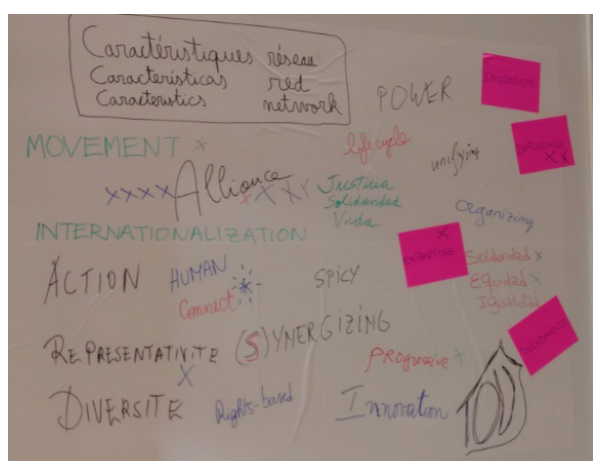 Caractéristiques réseau
Características red
Caracteristics network
POWER
INCLUSION
MOVEMENT X
lifecycle
unifying
INFLUENCE
XX
XXXX Alliance XXXY
Justicia
Solidaridad
Vida
Organizing
INTERNATIONALIZATION
X
EXPERTISE
Solidaridad X
Equidad X
Igualdad
ACTION
HUMAN
Connect
SPICY
(S)YNERGIZING
REPRESENTATIVITE
X
PROgressive +
DIVERSITE
Rights-based
Innovation